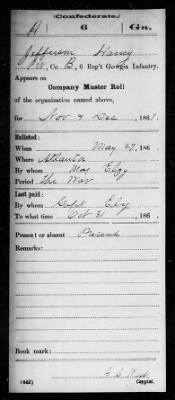 (Confederate.)
H 6 Ga.
Jefferson Haney
Pvt, Co. B, 6 Reg't Georgia Infantry.
Appears on
Company Muster Roll
of the organization named above,
for Nov & Dec, 1861.
Enlisted:
When May 27, 186
Where Atlanta
By whom Maj
Period The War
Last paid:
By whom Capt
To what time Oct 31, 186
Present or absent Present
Remarks:
Book mark:
(642) Copyist.